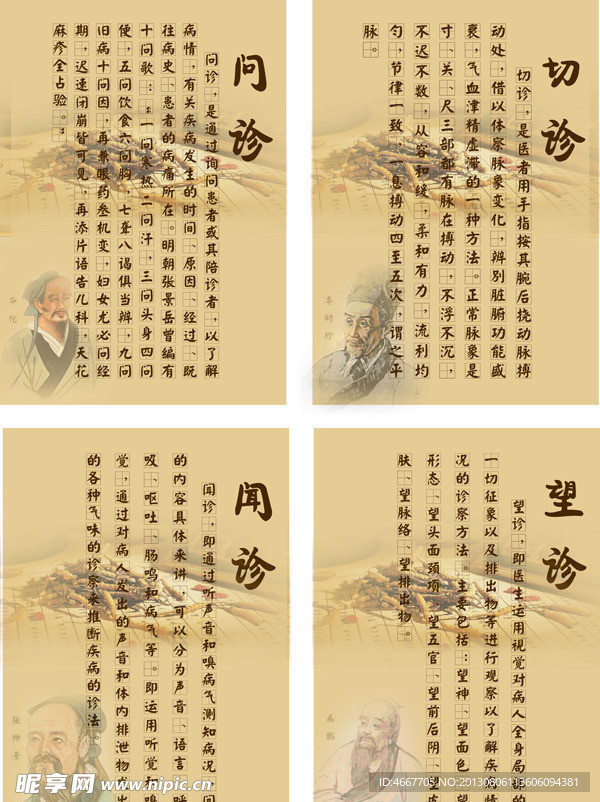 问诊
问诊，是通过询问患者或其陪诊者，以了解
病情，有关疾病发生的时间、原因、经过、既
往病史、患者的病痛所在。明朝张景岳曾编有
十问歌：“一问寒热二问汗，三问头身四问
便，五问饮食六问胸，七聋八谒俱当辨，九问
旧病十问因，再兼眼药叁机变，妇女尤必问经
期，迟速闭崩皆可见，再添片语告儿科，天花
麻疹全占验。”
华佗
切诊
切诊，是医者用手指按其腕后挠动脉搏
动处，借以体察脉象变化，辨别脏腑功能盛
衰，气血津精虚滞的一种方法。正常脉象是
寸、关、尺三部都有脉在搏动，不浮不沉，
不迟不数，从容和缓，柔和有力，流利均
匀，节律一致，一息搏动四至五次，谓之平
脉。
李时珍
闻诊
闻诊，即通过听声音和嗅病气测知病况
的内容具体来讲，可以分为声音、语言、呼
吸、呕吐、肠鸣和病气等。即运用听觉和
觉，通过对病人发出的声音和体内排泄物
的各种气味的诊察来推断疾病的诊法。
张仲景
望诊
望诊，即医生运用视觉对病人全身局部的
一切征象以及排出物等进行观察以了解疾病
况的诊察方法。主要包括：望神、望面色
形态、望头面颈项、望五官、望前后阴、望
肤、望脉络、望排出物。
扁鹊
昵享网 www.nipic.cn
ID:4667705